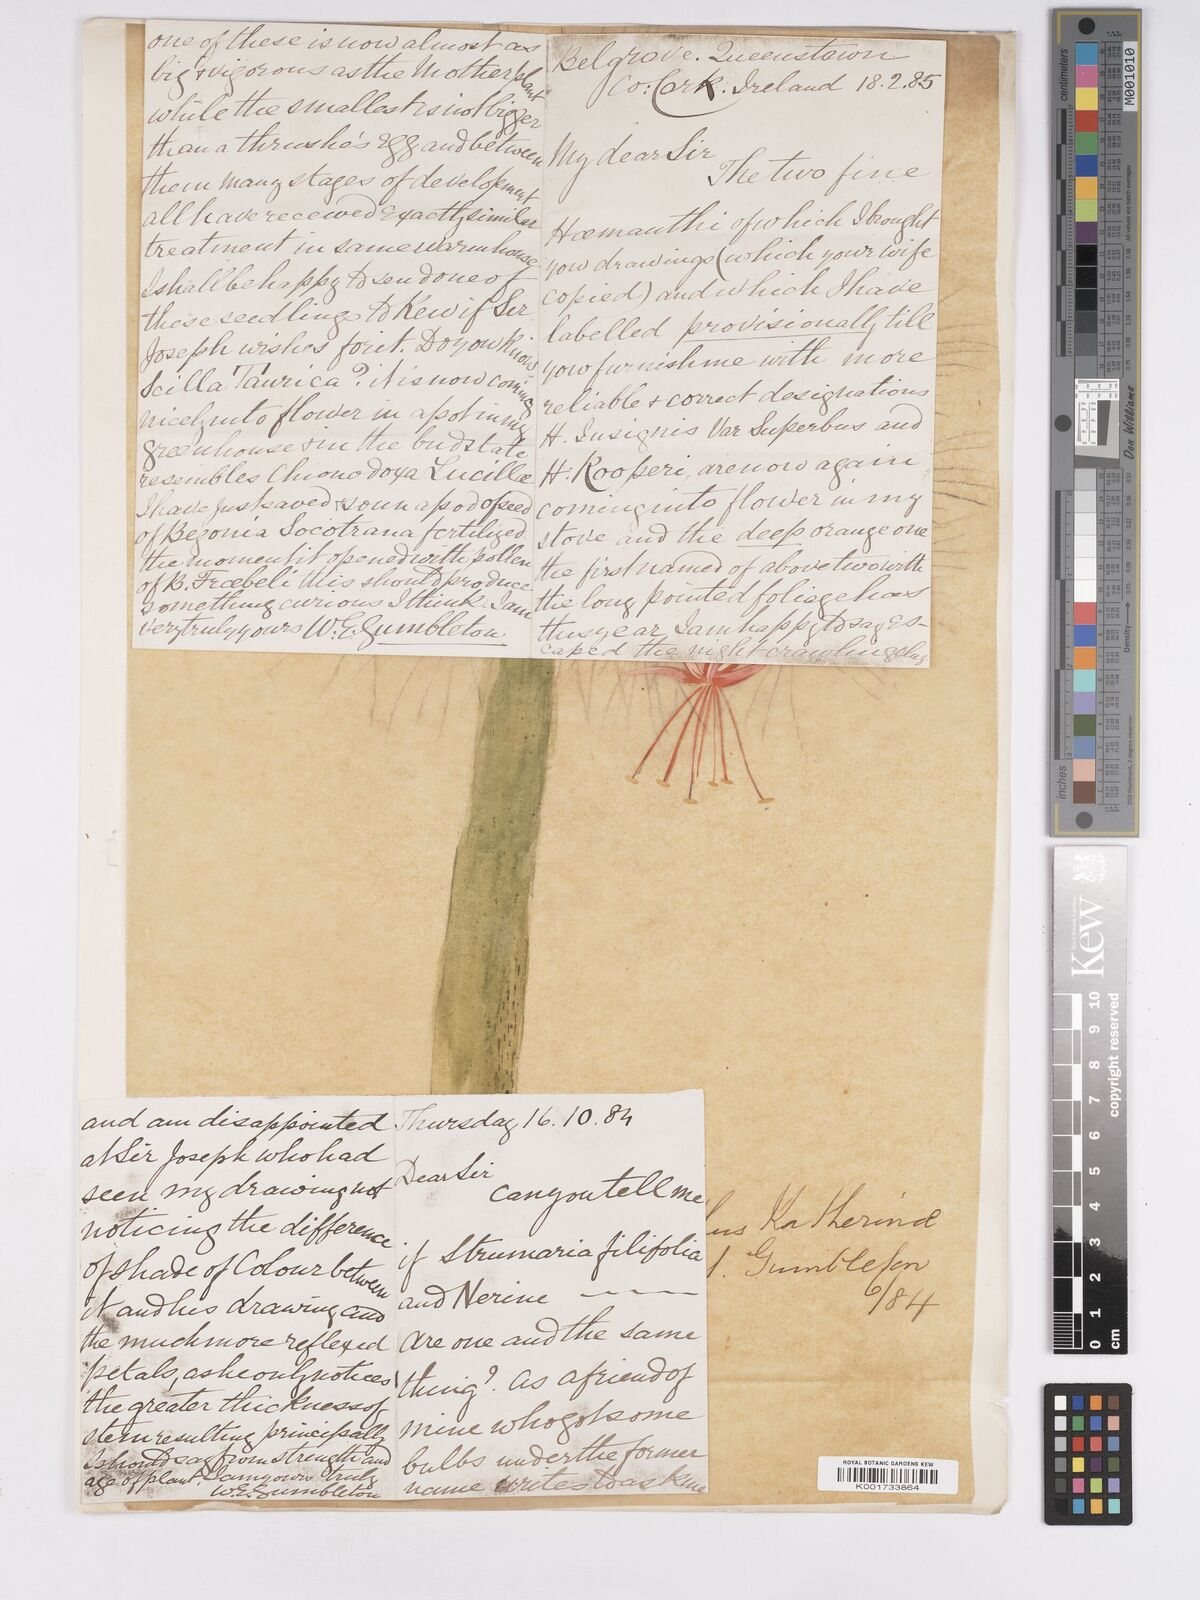 one of these is now almost as
big & vigorous as the Mother plant
while the smallest is not bigger
than a thrushe's Egg and between
them many stages of development
all have received Exactly similar
treatment in same warm house
I shall be happy to send one of
these seedlings to Kew if Sir
Joseph wishes for it. Do you know
Scilla Taurica? it is now coming
nicely into flower in a pot in my
greenhouse & in the bud state
resembles Chionodoxa Luciliæ
I have just saved & sown a pod of seed
of Begonia Socotrana fertilized
the moment it opened with pollen
of B. Frœbeli this should produce
something curious I think. I am
very truly yours W.E. Gumbleton
Belgrove. Queenstown
Co: Cork. Ireland 18.2.85
My dear Sir
The two fine
Hæmanthi of which I brought
you drawings (which your wife
copied) and which I have
labelled provisionally till
you furnish me with more
reliable & correct designations
H. Insignis Var Superbus and
H: Rooperi, are now again
coming into flower in my
stove and the deep orange one
the first named of above two with
the long pointed foliage has
this year I am happy to say es-
caped the night crawling slug
and am disappointed
at Sir Joseph who had
seen my drawing not
noticing the difference
of shade of Colour between
it and his drawing and
the much more reflexed
petals, as he only notices
the greater thickness of
stem resulting principally
I should say from strength and
age of plant. I am yours truly
W.E. Gumbleton
Thursday 16.10.84
Dear Sir
can you tell me
if Strumaria filifolia
and Nerine ----
are one and the same
thing? as a friend of
mine who got some
bulbs under the former
name writes to ask me
us Katherinæ
Gumbleton
6/84
ROYAL BOTANIC GARDENS KEW
K001733864
centimeters
M001010
Don Williams
Density
inches
Kew
Royal Botanic Gardens
copyright reserved
0 1 2 3 4 5 6 7 8 9 10
cm